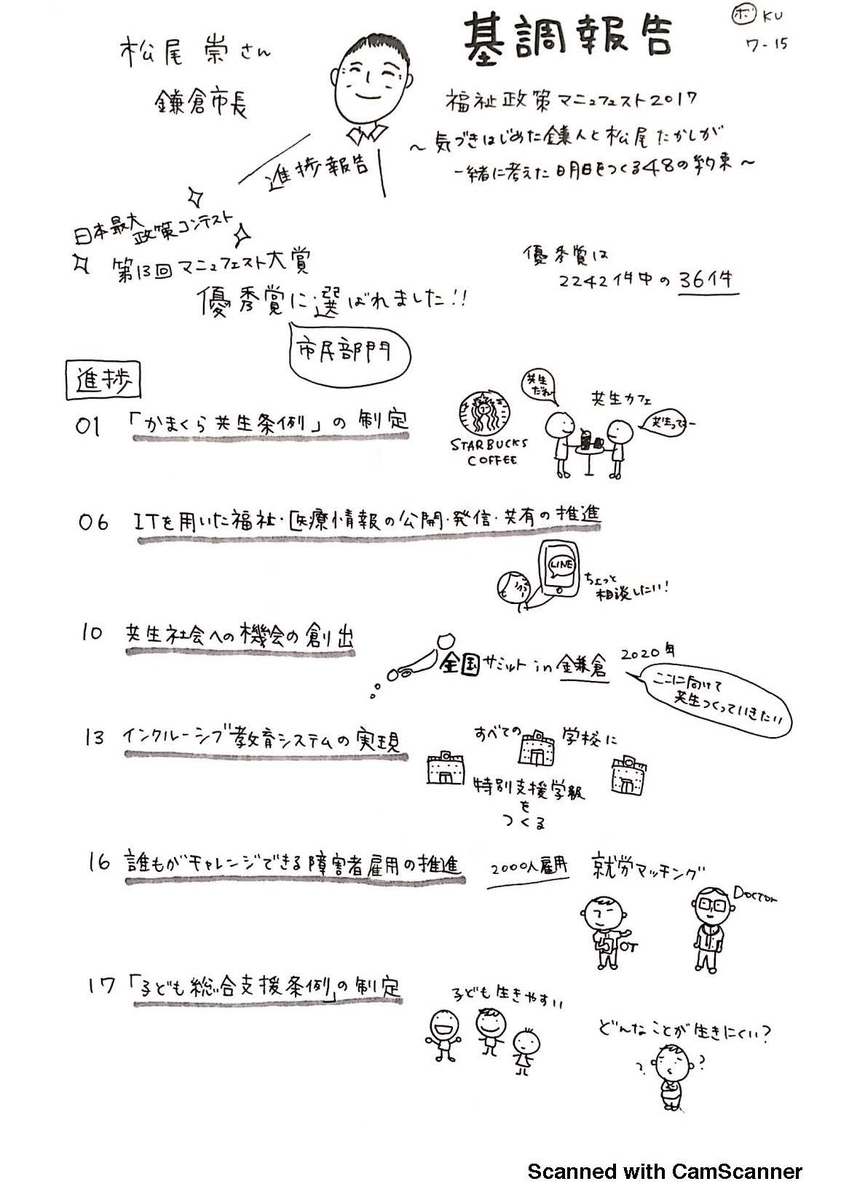 松尾 崇さん
鎌倉市長
基調報告
ボ KU
7-15
福祉政策マニュフェスト2017
～気づきはじめた鎌人と松尾たかしが
一緒に考えた明日をつくる48の約束～
進捗報告
日本最大
政策コンテスト
第13回マニュフェスト大賞
優秀賞に選ばれました!!
市民部門
優秀賞は
2242件中の36件
進捗
01 「かまくら共生条例」の制定
STARBUCKS
COFFEE
共生カフェ
共生
だね
共生ってさー
06 ITを用いた福祉・医療情報の公開・発信・共有の推進
LINE
ちょっと
相談したい!
10 共生社会への機会の創出
全国サミット in 鎌倉 2020年
ここに向けて
共生つくっていきたい
13 インクルーシブ教育システムの実現
すべての学校に
特別支援学級
を
つくる
16 誰もがチャレンジできる障害者雇用の推進
2000人雇用 就労マッチング
OT
Doctor
17 「子ども総合支援条例」の制定
子ども生きやすい
どんなことが生きにくい?
? ?
Scanned with CamScanner